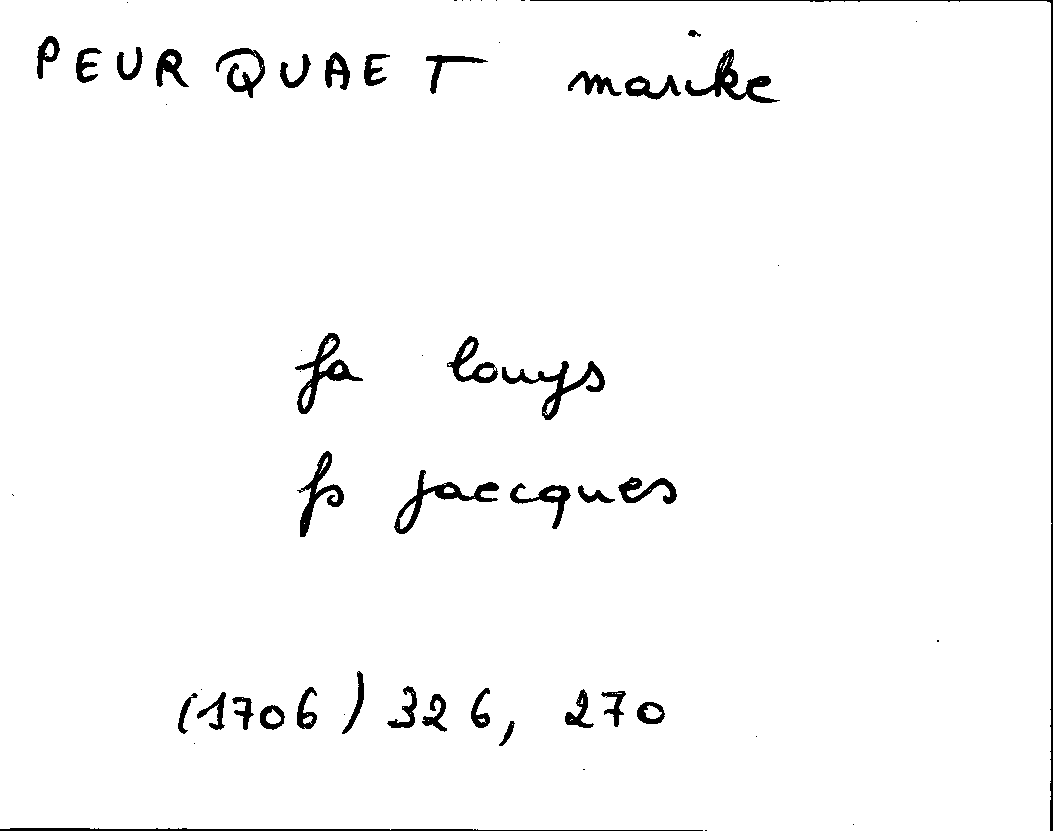 PEURQUAET marike
fa louys
fs jaecques
(1706) 326, 270